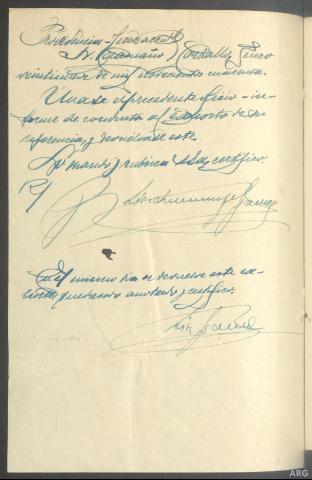 Providencia-Juez acctal
Sr.             Carballo, Enero
veinticinco de mil novecientos cuarenta.
Unase el precedente oficio-in-
forme de conducta al exhorto de su
referencia, y devuélvase este.
Lo mandó y rubrica S.Sª y certifico.
En el mismo dia se devuelve este ex-
horto, quedando anotado y certifico.
ARG